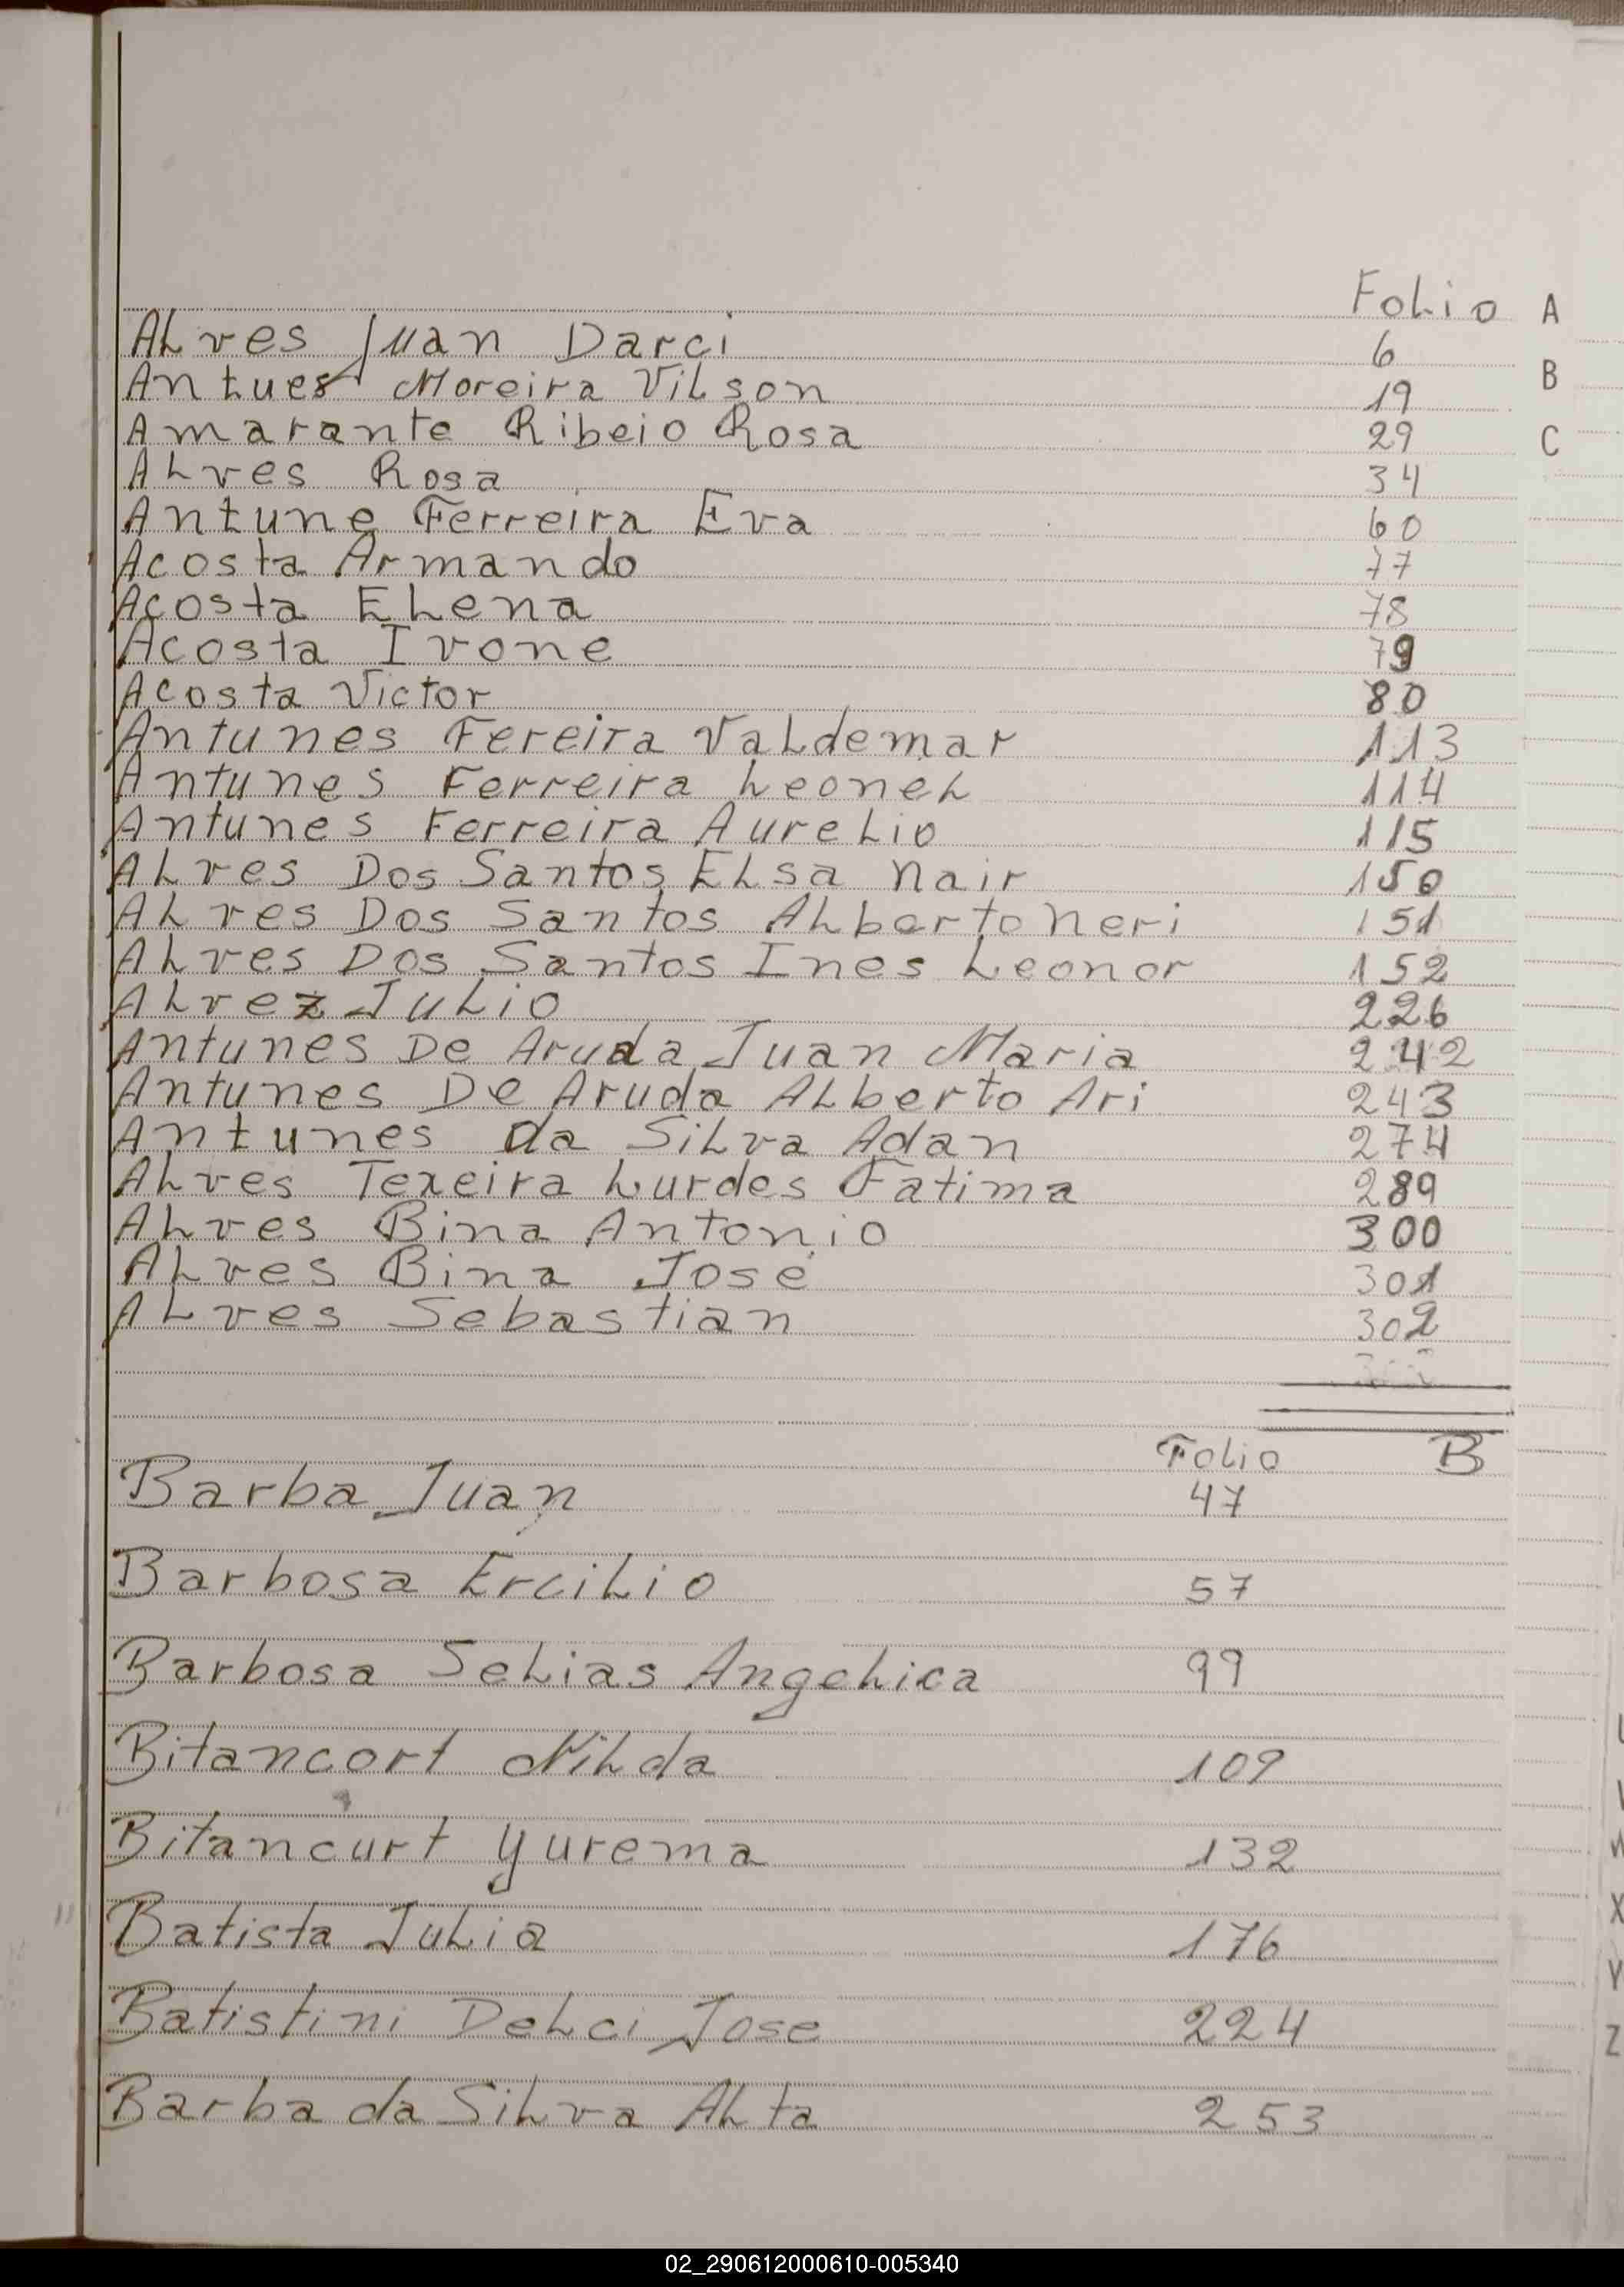 Folio A
Alves Juan Darci 6
Antues Moreira Vilson 19
B
Amarante Ribeio Rosa 29
C
Alves Rosa 34
Antune Ferreira Eva 60
Acosta Armando 77
Acosta Elena 78
Acosta Ivone 79
Acosta Victor 80
Antunes Fereira Valdemar 113
Antunes Ferreira Leonel 114
Antunes Ferreira Aurelio 115
Alves Dos Santos Elsa Nair 150
Alves Dos Santos Alberto Neri 151
Alves Dos Santos Ines Leonor 152
Alvez Julio 226
Antunes De Aruda Juan Maria 242
Antunes De Aruda Alberto Ari 243
Antunes da Silva Adan 274
Alves Texeira Lurdes Fatima 289
Alves Bina Antonio 300
Alves Bina Jose 301
Alves Sebastian 302
Folio B
Barba Juan 47
Barbosa Ercilio 57
Barbosa Selias Angelica 99
Bitancort Nilda 109
Bitancurt Yurema 132
Batista Julia 176
X
Y
Batistini Delci Jose 224
Z
Barba da Silva Alta 253
02_290612000610-005340